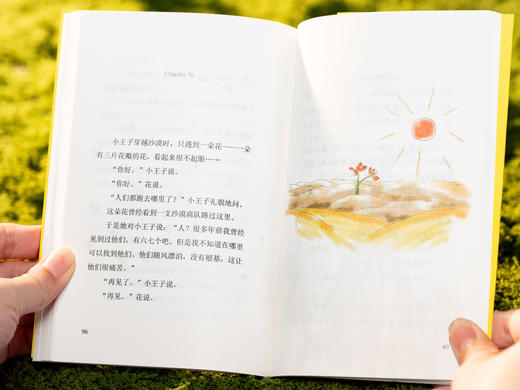 Chapter 18
小王子穿越沙漠时，只遇到一朵花——一朵
有三片花瓣的花，看起来很不起眼……
“你好。”小王子说。
“你好。”花说。
“人们都跑去哪里了？”小王子礼貌地问。
这朵花曾经看到一支沙漠商队路过这里。
于是她对小王子说：“人？很多年前我曾经
见到过他们，有六七个吧。但是我不知道在哪里
可以找到他们。他们随风漂泊，没有根基，这让
他们很痛苦。”
“再见了。”小王子说。
“再见。”花说。
96
97